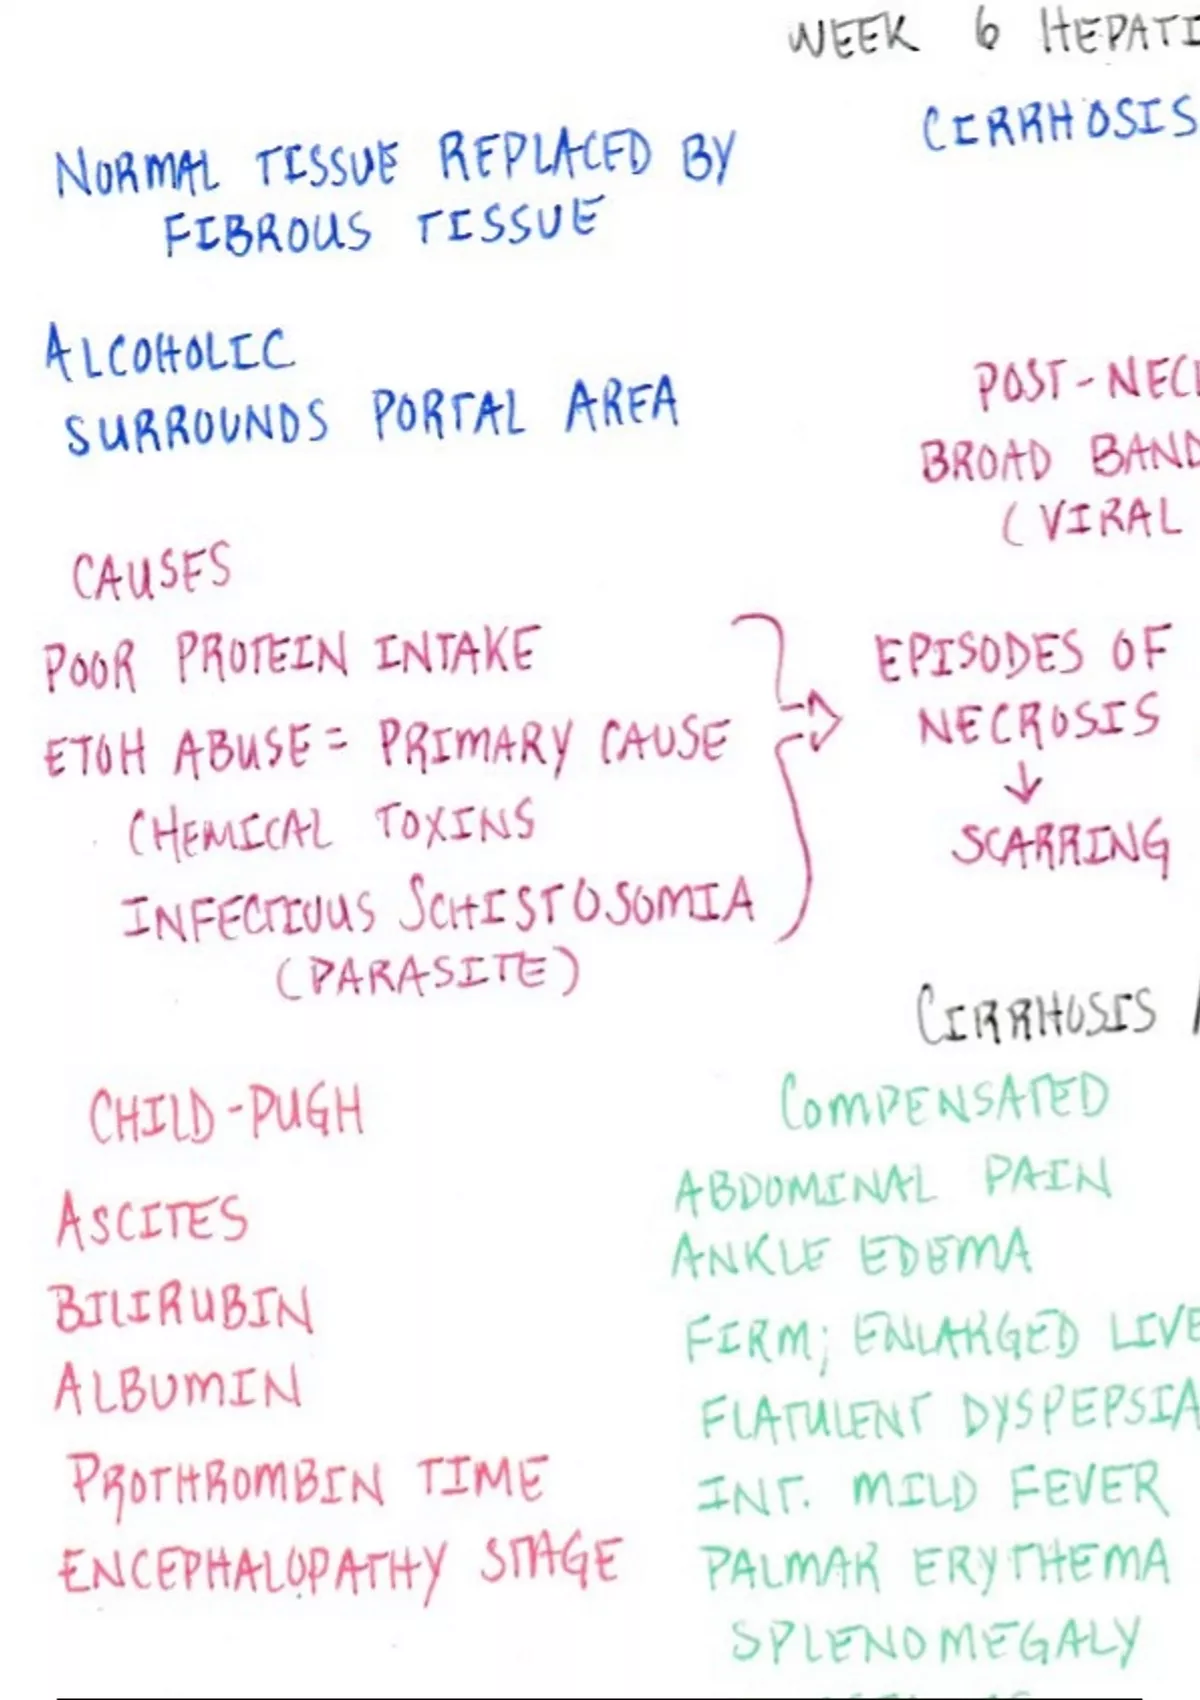 WEEK 6 HEPATI
CIRRHOSIS
NORMAL TISSUE REPLACED BY
FIBROUS TISSUE
ALCOHOLIC
SURROUNDS PORTAL AREA
POST-NEC
BROAD BAND
(VIRAL
CAUSES
POOR PROTEIN INTAKE
ETOH ABUSE = PRIMARY CAUSE
CHEMICAL TOXINS
INFECTIOUS SCHISTOSOMIA
(PARASITE)
EPISODES OF
NECROSIS
↓
SCARRING
CIRRHOSIS
CHILD-PUGH
ASCITES
BILIRUBIN
ALBUMIN
PROTHROMBIN TIME
ENCEPHALOPATHY STAGE
COMPENSATED
ABDOMINAL PAIN
ANKLE EDEMA
FIRM; ENLARGED LIVE
FLATULENT DYSPEPSIA
INT. MILD FEVER
PALMAR ERYTHEMA
SPLENOMEGALY